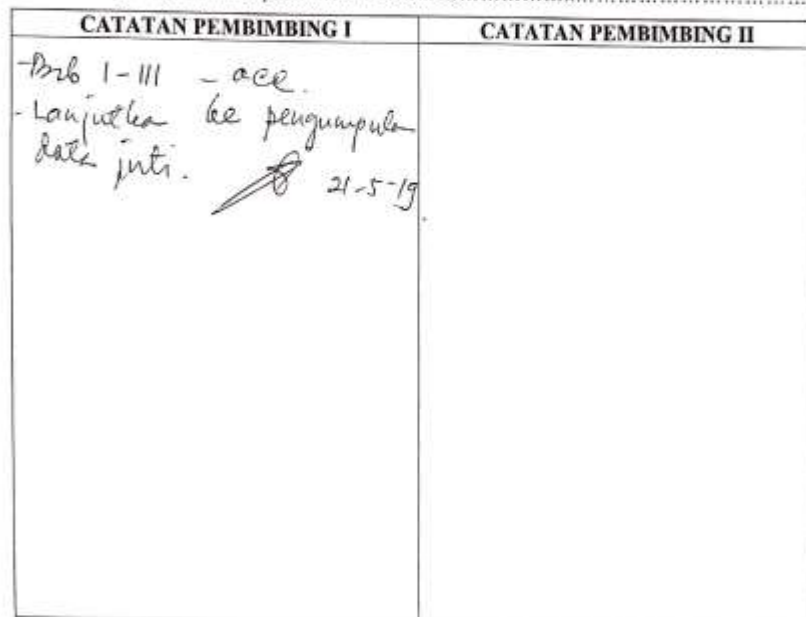 CATATAN PEMBIMBING I
CATATAN PEMBIMBING II
- Bab I - III - acc.
- Lanjutkan ke pengumpulan
data inti.
21-5-19